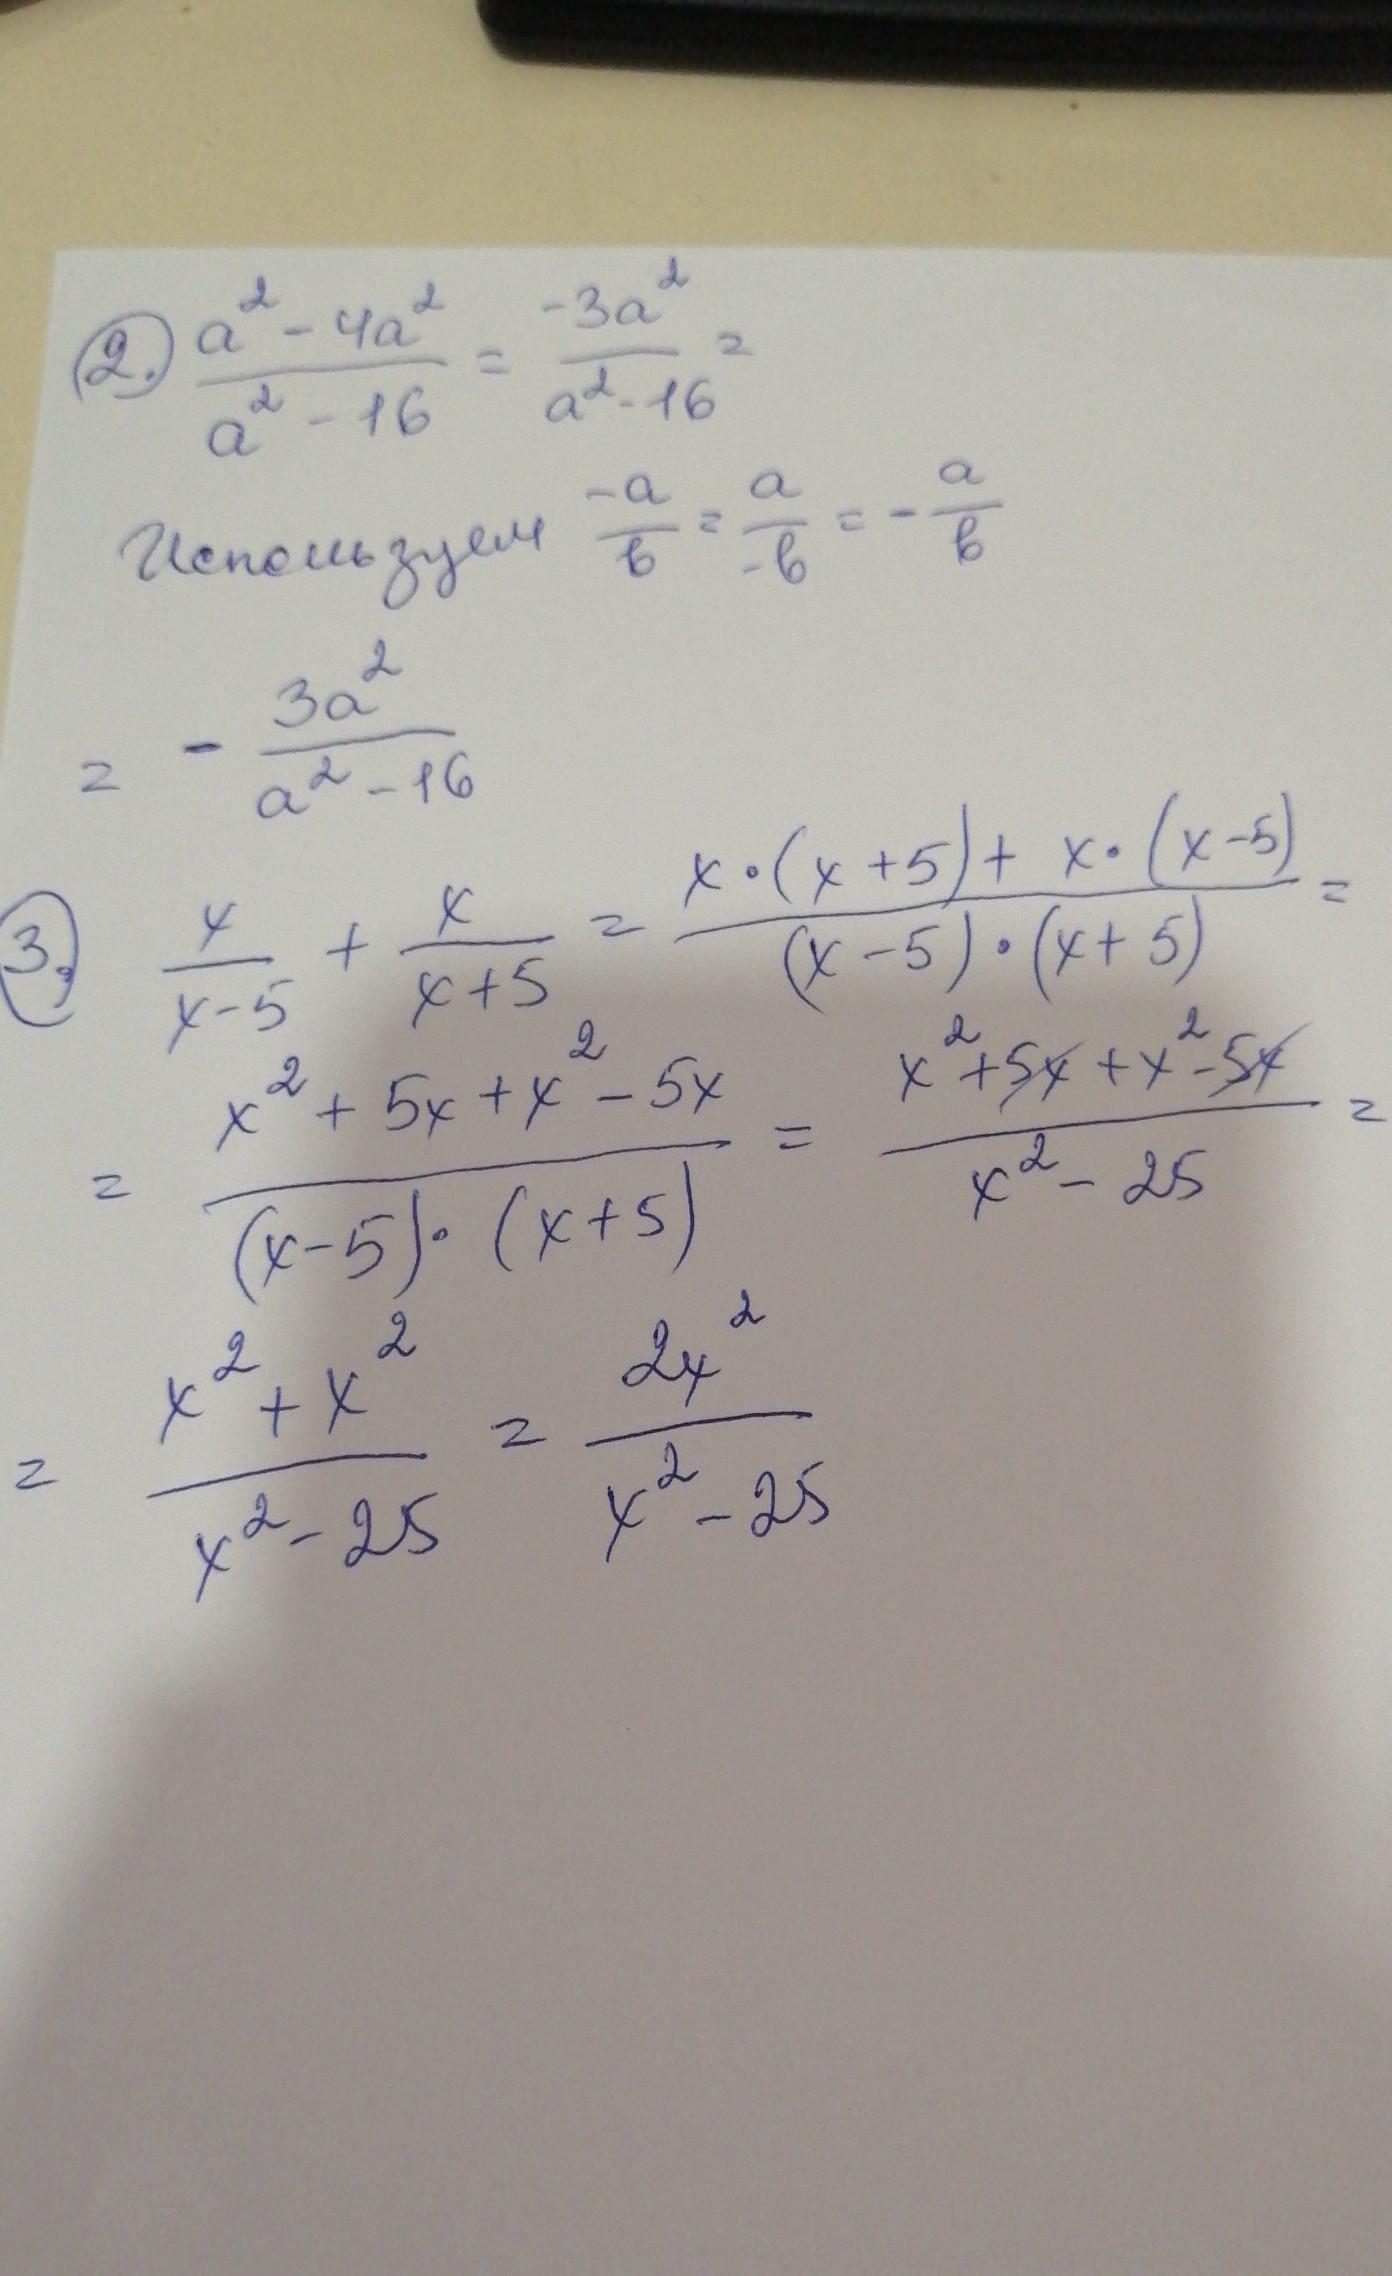 2. (a² - 4a²)/(a² - 16) = (-3a²)/(a² - 16) =
Используем (-a)/b = a/(-b) = - a/b
= - 3a²/(a² - 16)
3. x/(x-5) + x/(x+5) = (x·(x+5) + x·(x-5))/((x-5)·(x+5)) =
= (x² + 5x + x² - 5x)/((x-5)·(x+5)) = (x² + 5x + x² - 5x)/(x² - 25) =
= (x² + x²)/(x² - 25) = 2x²/(x² - 25)